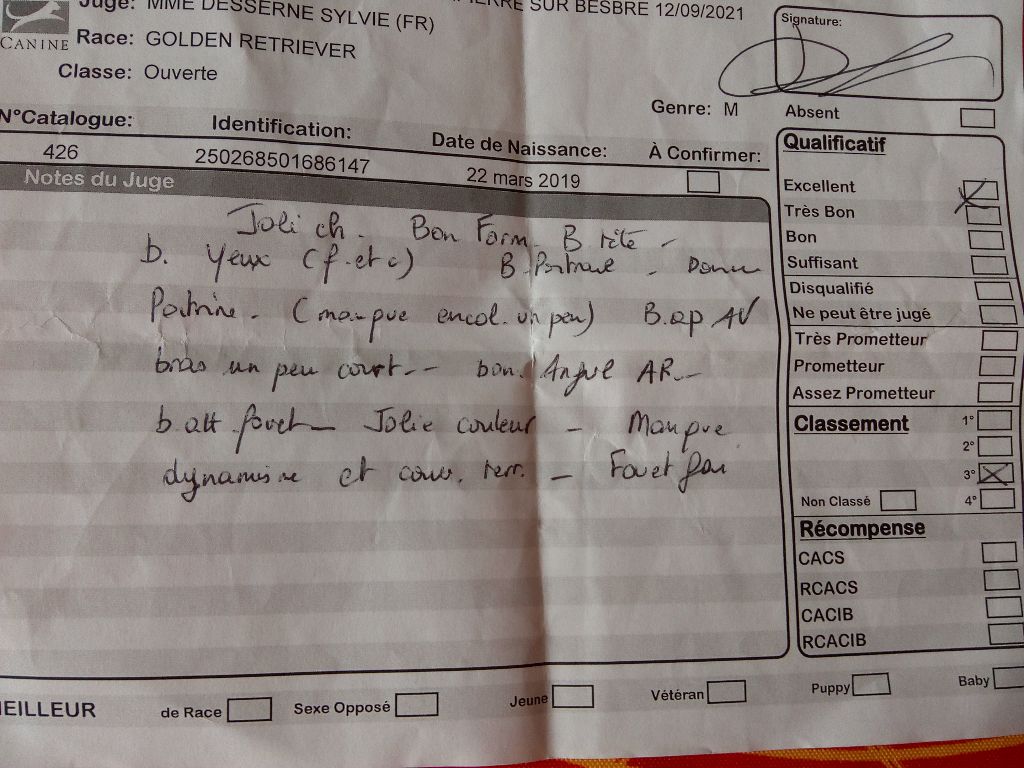 Juge: MME DESSERNE SYLVIE (FR)
PIERRE SUR BESBRE 12/09/2021
CANINE
Race: GOLDEN RETRIEVER
Classe: Ouverte
Signature:
Genre: M
Absent
N°Catalogue: Identification: Date de Naissance: À Confirmer:
426 250268501686147 22 mars 2019
Notes du Juge
Joli ch. Bon Form. B tête -
b. Yeux (f. et c) B. Poitrail -
Poitrine - (manque encol. un peu) B. ap AV
bras un peu court -- bon. Angul AR --
b. att fouet - Jolie couleur - Manque
dynamisme et couv. terr. - Fouet gai
Qualificatif
Excellent
Très Bon
Bon
Suffisant
Disqualifié
Ne peut être jugé
Très Prometteur
Prometteur
Assez Prometteur
Classement 1°
2°
3°
Non Classé 4°
Récompense
CACS
RCACS
CACIB
RCACIB
MEILLEUR de Race Sexe Opposé Jeune Vétéran Puppy Baby